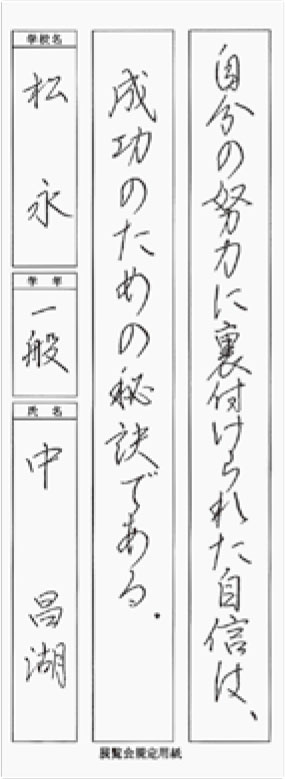 自分の努力に裏付けられた自信は、
成功のための秘訣である.
学校名
松永
学年
一般
氏名
中 昌湖
展覧会規定用紙